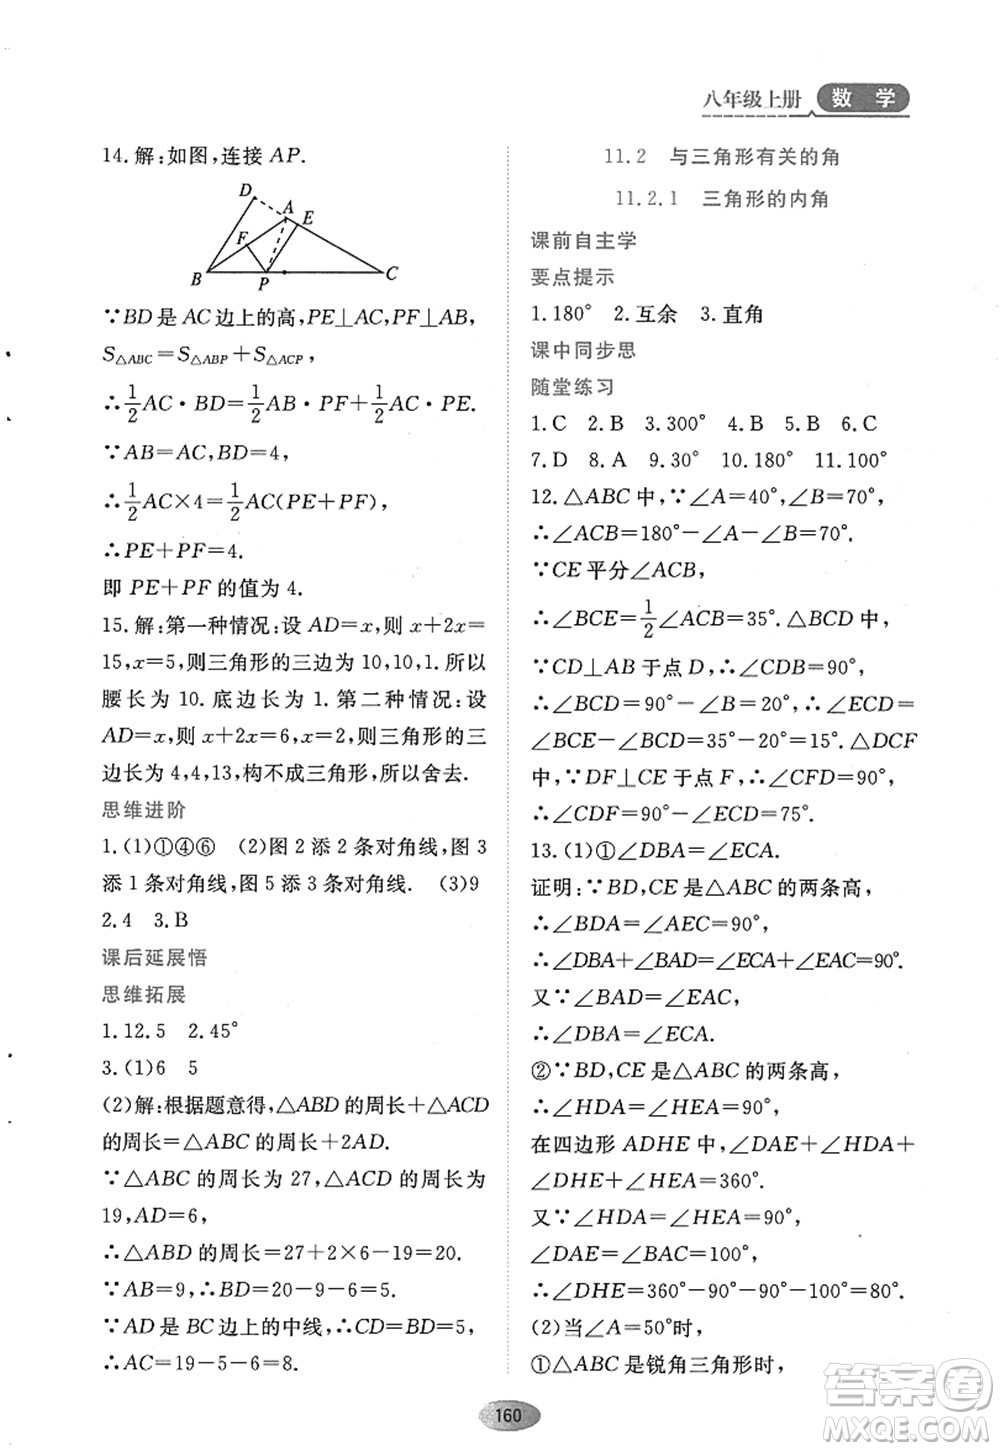 八年级上册 数学
14.解:如图,连接 AP.
D
A
E
F
B
P
C
∵BD是 AC边上的高,PE⊥AC,PF⊥AB,
S△ABC=S△ABP+S△ACP,
∴1/2AC·BD=1/2AB·PF+1/2AC·PE.
∵AB=AC,BD=4,
∴1/2AC×4=1/2AC(PE+PF),
∴PE+PF=4.
即 PE+PF 的值为 4.
15.解:第一种情况:设 AD=x,则 x+2x=
15,x=5,则三角形的三边为 10,10,1.所以
腰长为 10.底边长为 1.第二种情况:设
AD=x,则 x+2x=6,x=2,则三角形的三
边长为 4,4,13,构不成三角形,所以舍去.
思维进阶
1.(1)①④⑥ (2)图 2 添 2 条对角线,图 3
添 1 条对角线,图 5 添 3 条对角线. (3)9
2.4 3.B
课后延展悟
思维拓展
1.12.5 2.45°
3.(1)6 5
(2)解:根据题意得,△ABD 的周长+△ACD
的周长=△ABC 的周长+2AD.
∵△ABC 的周长为 27,△ACD 的周长为
19,AD=6,
∴△ABD 的周长=27+2×6-19=20.
∵AB=9,∴BD=20-9-6=5.
∵AD 是 BC 边上的中线,∴CD=BD=5,
∴AC=19-5-6=8.
11.2 与三角形有关的角
11.2.1 三角形的内角
课前自主学
要点提示
1.180° 2.互余 3.直角
课中同步思
随堂练习
1.C 2.B 3.300° 4.B 5.B 6.C
7.D 8.A 9.30° 10.180° 11.100°
12.△ABC 中,∵∠A=40°,∠B=70°,
∴∠ACB=180°-∠A-∠B=70°.
∵CE 平分∠ACB,
∴∠BCE=1/2∠ACB=35°.△BCD 中,
∵CD⊥AB 于点 D,∴∠CDB=90°,
∴∠BCD=90°-∠B=20°,∴∠ECD=
∠BCE-∠BCD=35°-20°=15°.△DCF
中,∵DF⊥CE 于点 F,∴∠DFC=90°,
∴∠CDF=90°-∠ECD=75°.
13.(1)①∠DBA=∠ECA.
证明:∵BD,CE 是△ABC 的两条高,
∴∠BDA=∠AEC=90°,
∴∠DBA+∠BAD=∠ECA+∠EAC=90°.
又∵∠BAD=∠EAC,
∴∠DBA=∠ECA.
②∵BD,CE 是△ABC 的两条高,
∴∠HDA=∠HEA=90°,
在四边形 ADHE 中,∠DAE+∠HDA+
∠DHE+∠HEA=360°.
又∵∠HDA=∠HEA=90°,
∠DAE=∠BAC=90°,
∴∠DHE=360°-90°-90°-90°=90°.
(2)当∠A=50°时,
①△ABC 是锐角三角形时,
160
答案圈
MXQE.COM